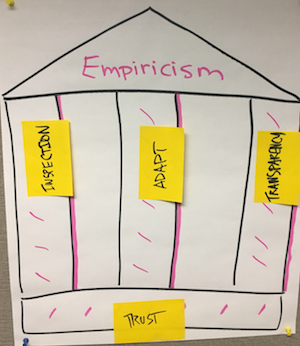 Empiricism
INSPECTION
ADAPT
TRANSPARENCY
TRUST